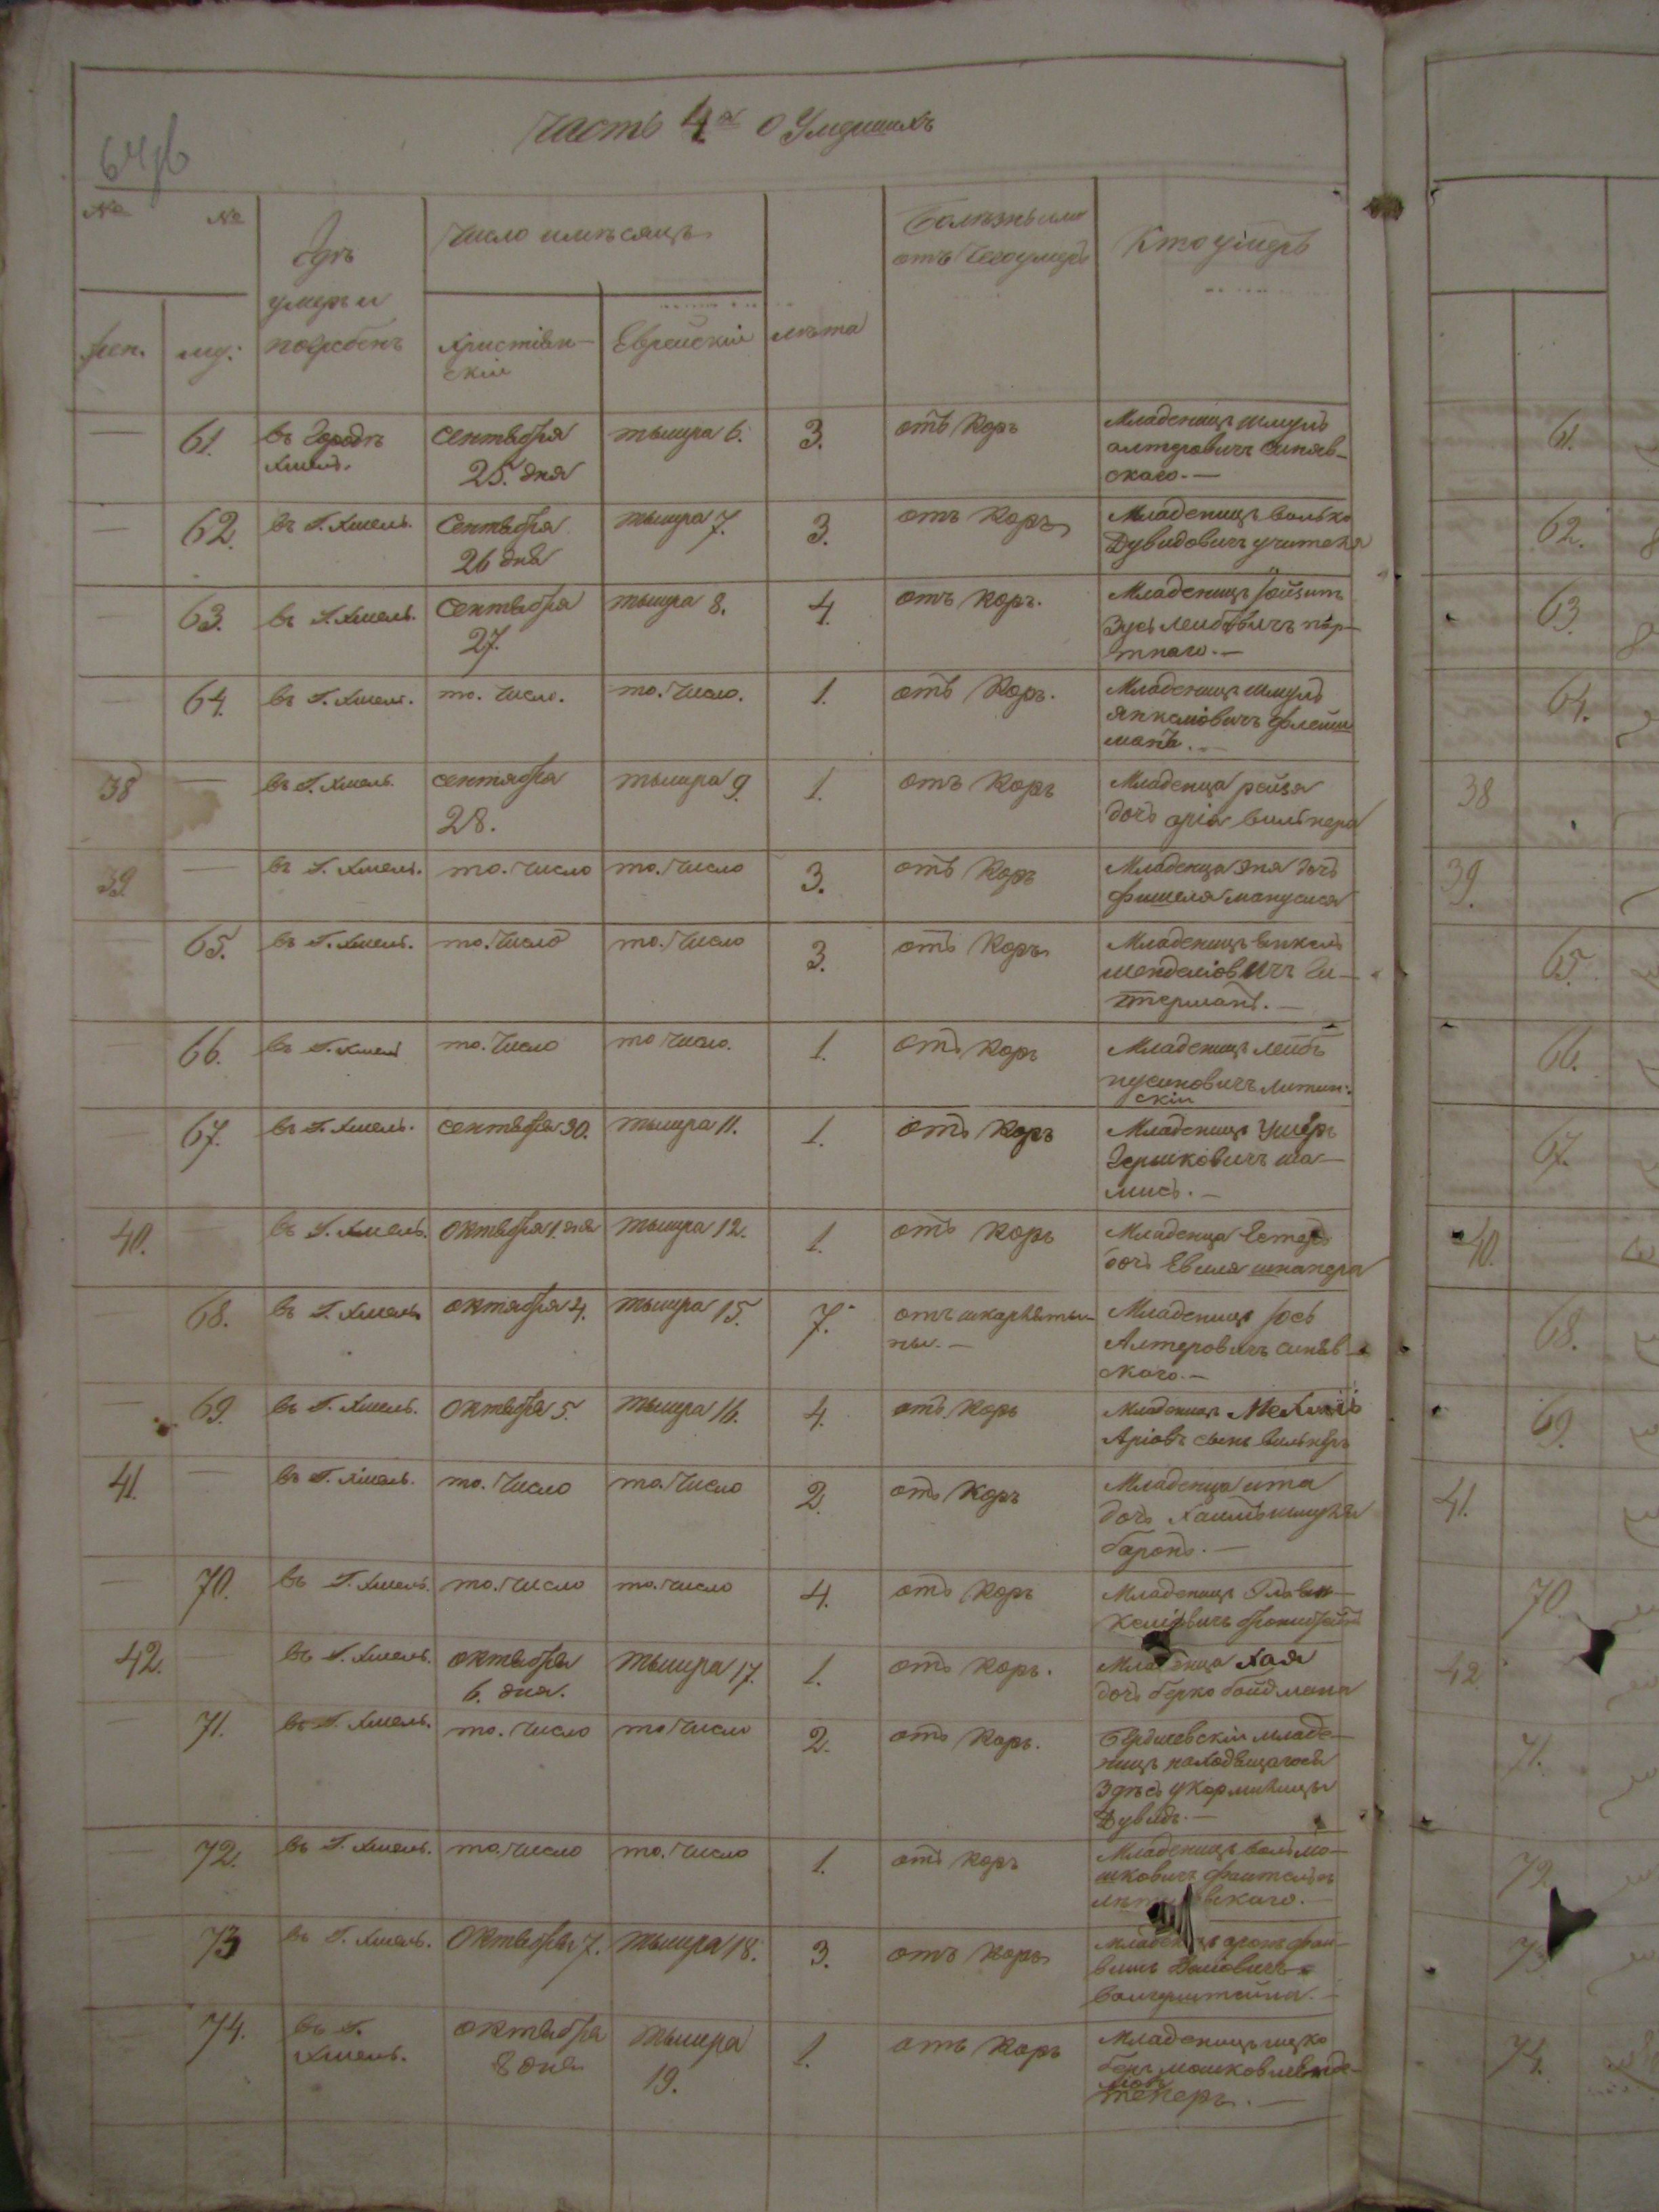 Часть 4я о Умершихъ
№ №
Гдѣ умеръ и погребенъ
Число и мѣсяцъ
лѣта
Болѣзнь или отъ чего умеръ
Кто умеръ
жен. му:
Христіян-скій
Еврейскій
— 61. въ Городѣ Хмель. Сентября 25. дня тышра 6. 3. отъ коръ Младенецъ шмуль алтеровичъ синяв-скаго. —
— 62. въ Г. Хмель. Сентября 26 дня тышра 7. 3. отъ коръ Младенецъ волько Дувидовичъ учителя
— 63. въ Г. Хмель. Сентября 27. тышра 8. 4. отъ коръ. Младенецъ зусь лейбовичъ пор-тнаго. —
— 64. въ Г. Хмель. то. число. то. число. 1. отъ коръ. Младенецъ шмуль янкеліовичъ флейш манъ. —
38 — въ Г. Хмель. сентября 28. тышра 9. 1. отъ коръ Младенца рейзя дочь арія вильнера
39 — въ Г. Хмель. то. число то. число 3. отъ коръ Младенца эня дочь фишеля мануиса
— 65. въ Г. Хмель. то. число то. число 3. отъ коръ Младенецъ янкель менделіовичъ ги-терманъ. —
— 66. въ Г. Хмель то. число то число. 1. отъ коръ Младенецъ лейбъ нусиновичъ литин: скій
— 67. въ Г. Хмель. сентября 30. тышра 11. 1. отъ коръ Младенецъ Ушеръ Гершковичъ ша-мисъ. —
40. — въ Г. Хмель. октября 1. дня тышра 12. 1. отъ коръ Младенца Естеръ дочь Евеля шнапера
— 68. въ Г. Хмель октября 4. тышра 15. 7. отъ шкарляты-ны. — Младенецъ Іось Алтеровичъ синяв-скаго. —
— 69. въ Г. Хмель. октября 5. тышра 16. 4. отъ коръ Младенецъ Аріовъ сынъ вильнеръ
41. — въ Г. Хмель. то. число то. число 2. отъ коръ Младенца ита дочь Хаимъ шмуля баронъ. —
— 70. въ Г. Хмель. то. число то. число 4. отъ коръ Младенецъ
42. — въ Г. Хмель. октября 6. дня. тышра 17. 1. отъ коръ. Младенца Хая дочь берко бойдмана
— 71. въ Г. Хмель. то. число то число 2. отъ коръ. Бердичевскій младе-нецъ находящагося здѣсь у кормилицы Дувидъ. —
— 72. въ Г. Хмель. то. число то. число 1. отъ коръ Младенецъ вольмо-шковичъ
— 73 въ Г. Хмель. Октября 7. тышра 18. 3. отъ коръ Младенецъ аронъ фай-вишъ
74. въ Г. Хмель. октября 8 дня тышра 19. 1. отъ коръ Младенецъ ицко беръ мошков
61.
62.
63.
64.
38
39.
65.
66.
67.
40.
68.
69.
41.
70
42
71.
72
73
74.